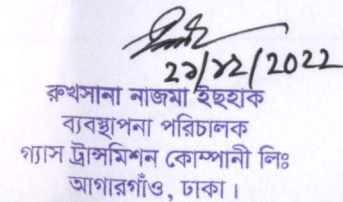 ২১/১২/2022
রুখসানা নাজমা ইছহাক
ব্যবস্থাপনা পরিচালক
গ্যাস ট্রান্সমিশন কোম্পানী লিঃ
আগারগাঁও, ঢাকা।